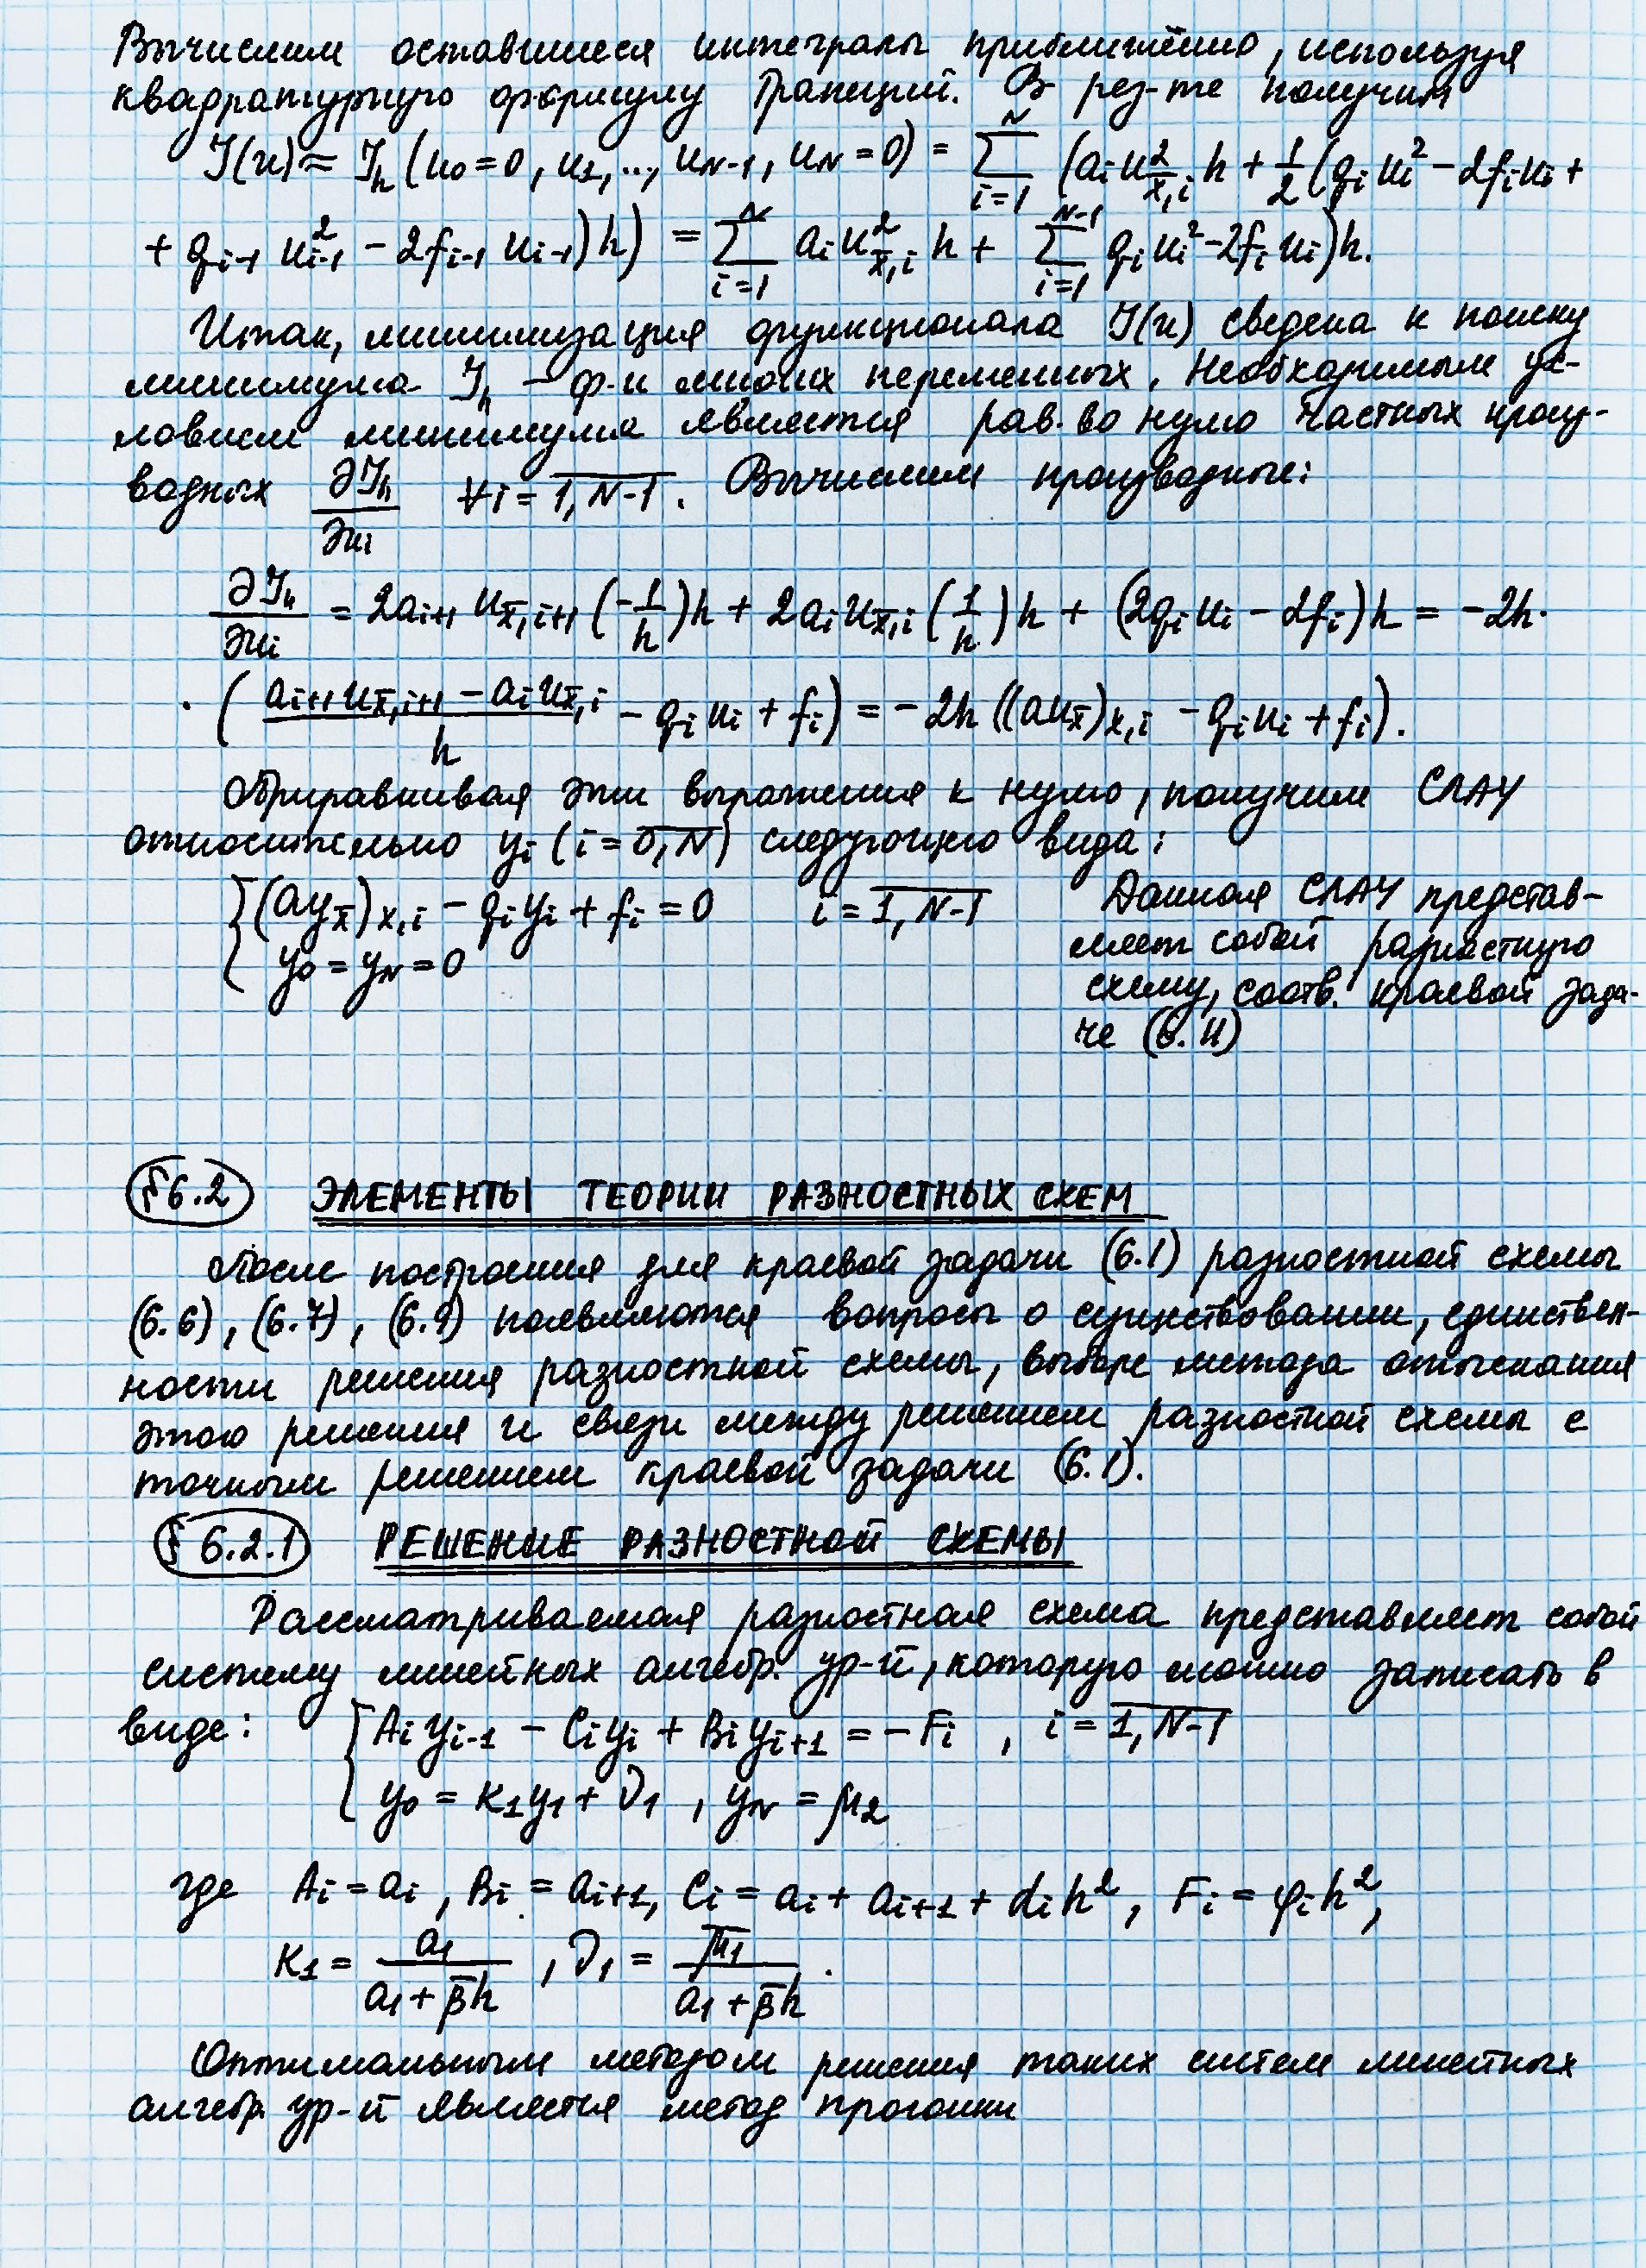 Вычислим оставшиеся интегралы приближённо, используя
квадратурную формулу трапеций. В рез-те получим
J(u) ≈ J_h (u_0 = 0, u_1, .., u_{N-1}, u_N = 0) = \sum_{i=1}^{N} (a_i u^2_{\bar{x},i} h + \frac{1}{2} (q_i u_i^2 - 2f_i u_i +
+ q_{i-1} u^2_{i-1} - 2f_{i-1} u_{i-1}) h) = \sum_{i=1}^{N} a_i u^2_{\bar{x},i} h + \sum_{i=1}^{N-1} q_i u_i^2 - 2f_i u_i) h.
Итак, минимизация функционала J(u) сведена к поиску
минимума J_h - ф-и многих переменных. Необходимым ус-
ловием минимума является рав-во нулю частных произ-
водных \frac{∂J_h}{∂u_i} ∀ i = \overline{1, N-1}. Вычислим производные:
\frac{∂J_h}{∂u_i} = 2a_{i+1} u_{\bar{x},i+1} (-\frac{1}{h}) h + 2a_i u_{\bar{x},i} (\frac{1}{h}) h + (2q_i u_i - 2f_i) h = -2h·
· (\frac{a_{i+1} u_{\bar{x},i+1} - a_i u_{\bar{x},i}}{h} - q_i u_i + f_i) = -2h ((au_{\bar{x}})_{x,i} - q_i u_i + f_i).
Приравнивая эти выражения к нулю, получим СЛАУ
относительно y_i (i = \overline{0, N}) следующего вида:
{ (ay_{\bar{x}})_{x,i} - q_i y_i + f_i = 0 i = \overline{1, N-1}
y_0 = y_N = 0
Данная СЛАУ представ-
ляет собой разностную
схему, соотв. краевой зада-
че (6.11)
§6.2 ЭЛЕМЕНТЫ ТЕОРИИ РАЗНОСТНЫХ СХЕМ
После построения для краевой задачи (6.1) разностной схемы
(6.6), (6.7), (6.9) появляются вопросы о существовании, единствен-
ности решения разностной схемы, выборе метода отыскания
этого решения и связи между решением разностной схемы с
точным решением краевой задачи (6.1).
§6.2.1 РЕШЕНИЕ РАЗНОСТНОЙ СХЕМЫ
Рассматриваемая разностная схема представляет собой
систему линейных алгебр. ур-й, которую можно записать в
виде: { A_i y_{i-1} - C_i y_i + B_i y_{i+1} = -F_i , i = \overline{1, N-1}
y_0 = κ_1 y_1 + ν_1 , y_N = μ_2
где A_i = a_i , B_i = a_{i+1}, C_i = a_i + a_{i+1} + d_i h^2, F_i = φ_i h^2,
κ_1 = \frac{a_1}{a_1 + \bar{β}h} , ν_1 = \frac{\bar{μ}_1}{a_1 + \bar{β}h} .
Оптимальным методом решения таких систем линейных
алгебр. ур-й является метод прогонки